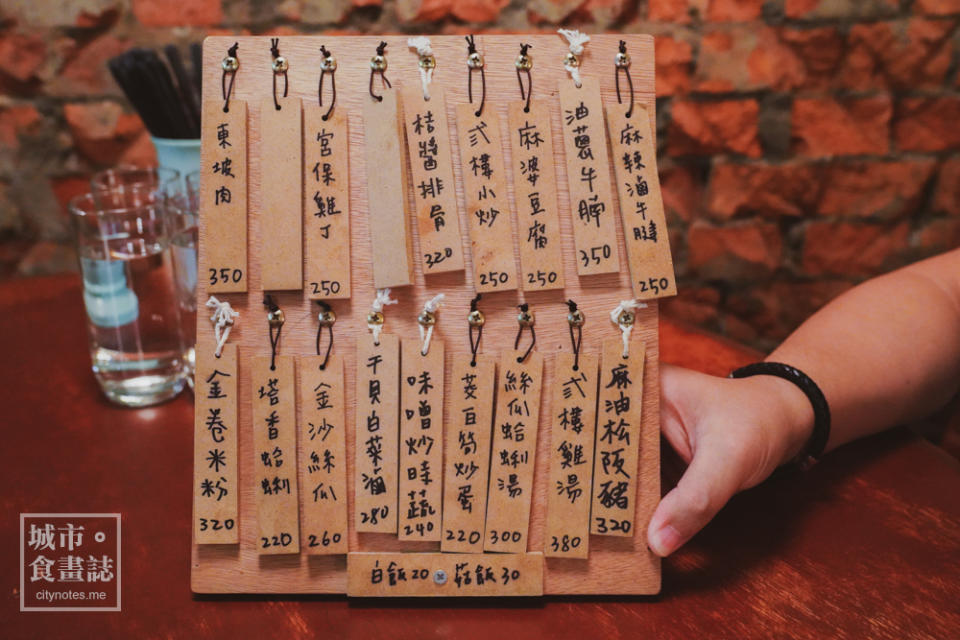 東坡肉 350
宮保雞丁 250
桔醬排骨 320
弍樓小炒 250
麻婆豆腐 250
油蔥牛腩 350
麻辣滷牛腱 250
金卷米粉 320
塔香蛤蜊 220
金沙絲瓜 260
干貝白菜滷 280
味噌炒時蔬 240
茭白筍炒蛋 220
絲瓜蛤蜊湯 300
弍樓雞湯 380
麻油松阪豬 320
白飯20 菇飯30
城市。
食畫誌
citynotes.me